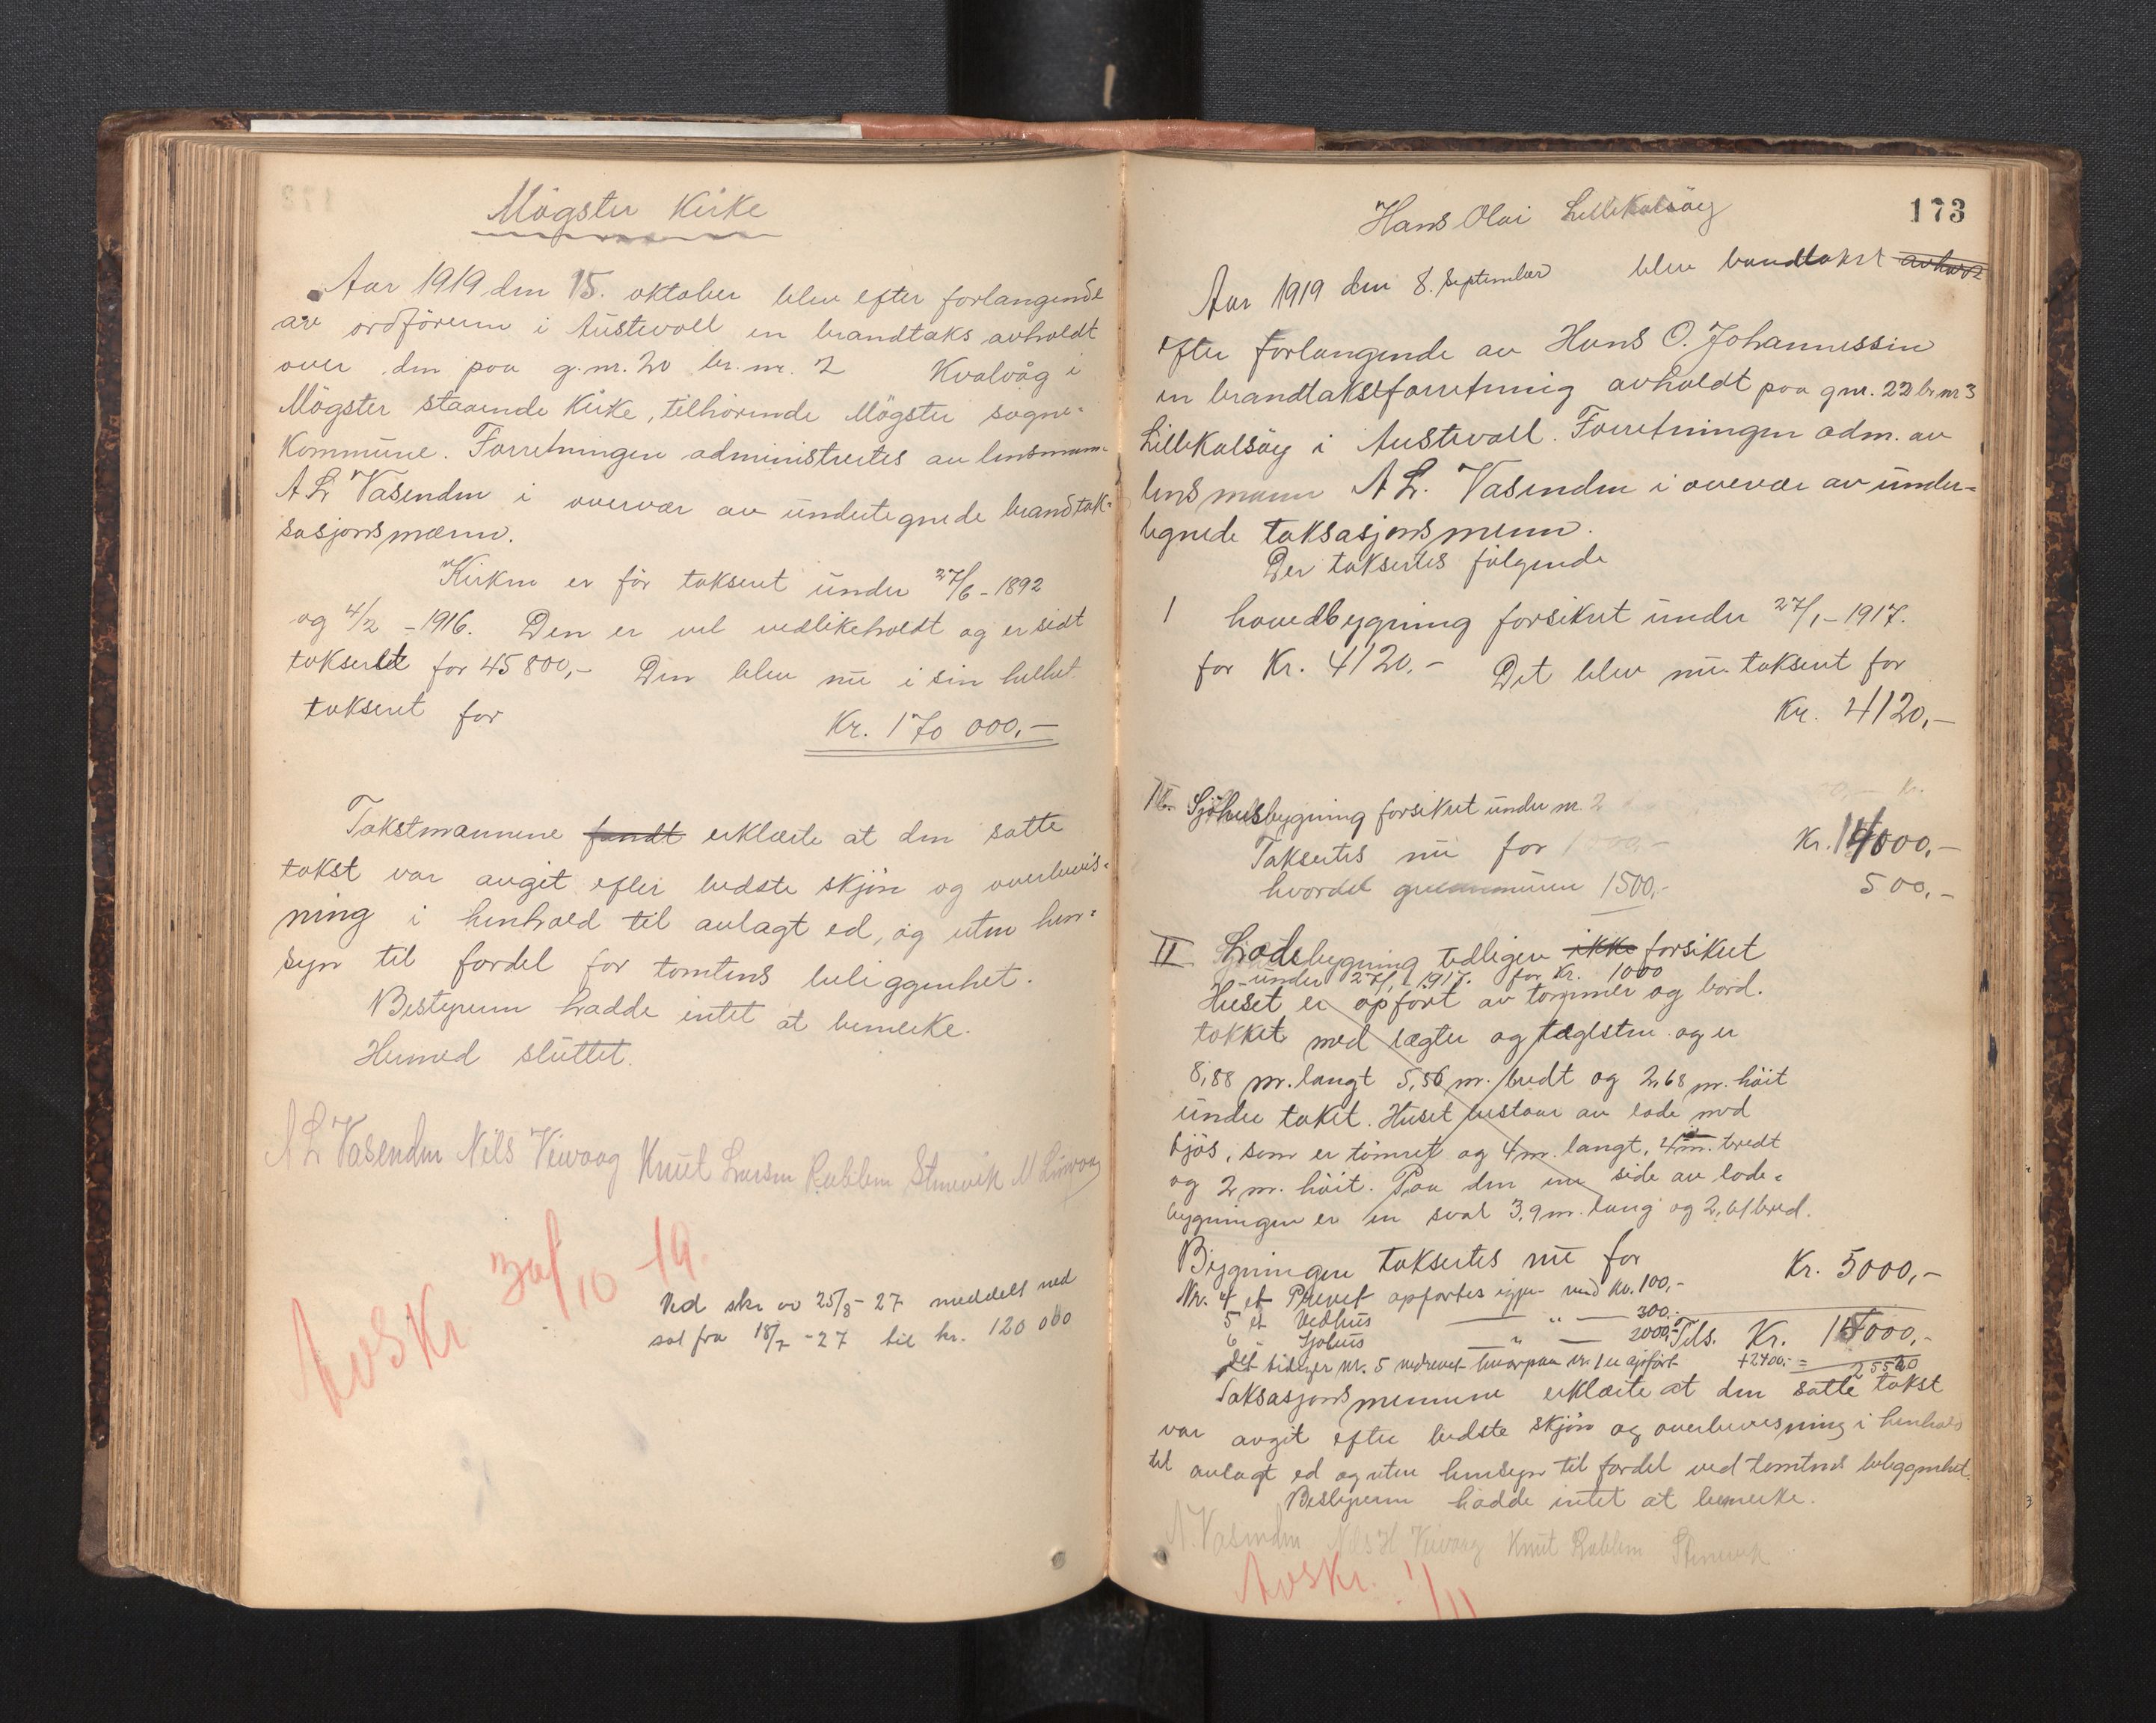 Mögster Kirke
Aar 1919 den 15. oktober blev efter forlangende
av ordföreren i Austevoll en brandtakst avholdt
over den paa g.nr. 20 br. nr. 2 Kvalvåg i
Mögster staaende Kirke, tilhörende Mögster sogne=
Kommune. Forretningen administrertes av lensmann
A L Vasenden i overvær av undertegnede brandtak=
sasjonsmænn.
Kirken er för taksert under 27/6 - 1892
og 4/2 - 1916. Den er vel vedlikeholdt og er sidt
taksert for 45 800,- Den blev nu i sin helhet
taksert for Kr. 170 000,-
Takstmannene fandt erklærte at den satte
takst var avgit efter bedste skjön og overbevis=
ning i henhold til avlagt ed, og uten hen=
syn til fordel for tomtens beliggenhet.
Bestyreren hadde intet at bemerke.
Hermed sluttet.
A L Vasenden Nils Veivaag Knut Larsen Rabben Stenevik
Avskr 30/10 - 19.
Ved skr av 25/8 - 27 meddelt ned
sat fra 18/7 - 27 til kr. 120 000
173
Hans Olai Lillekalsöy
Aar 1919 den 8. September blev brandtakst avholdt
efter forlangende av Hans O. Johannessen
en brandtakstforretning avholdt paa gnr. 22 br nr 3
Lillekalsöy i Austevoll. Forretningen adm. av
lensmann A L. Vasenden i overvær av under=
tegnede taksasjonsmenn.
Der taksertes fölgende
1 hovedbygning forsikret under 27/1 - 1917.
for Kr. 4120.- Det blev nu taksert for
Kr. 4120,-
Sjöhusbygning forsikret under nr. 2
Taksertes nu for Kr. 14000,-
hvordel grunnmuren 1500,- 500,-
II Lodebygning tidligere ikke forsikret
under 27/1 1917. for Kr. 1000
Huset er opfört av tömmer og bord.
tækket med lægter og tæglsten og er
8,88 m. langt 5,56 m. bredt og 2,68 m. höit
under taket. Huset bestaar av lade med
fjös, som er tömret og 4 m. langt, 4 m. bredt
og 2 m. höit. Paa den ene side av lode=
bygningen er en sval 3,9 m. lang og 2,61 bred.
Bygningen taksertes nu for Kr. 5000,-
Nr. 4 et Prevet opfortes igjen med kr. 100,-
5 et Vedhus — " — 300,-
6 " Sjöhus — " — 2000,- Tils. Kr. 15000,-
Det tidliger nr. 5 nedrevet hvorpaa nr. 1 er opfört + 2400,- = 25520
Taksasjonsmennene erklærte at den satte takst
var avgit efter bedste skjön og overbevisning i henhold
til avlagt ed og uten hensyn til fordel ved tomtens beliggenhet.
Bestyreren hadde intet at bemerke.
A. Vasenden Nils H Veivaag Knut Rabben Stenevik
Avskr. 1/11